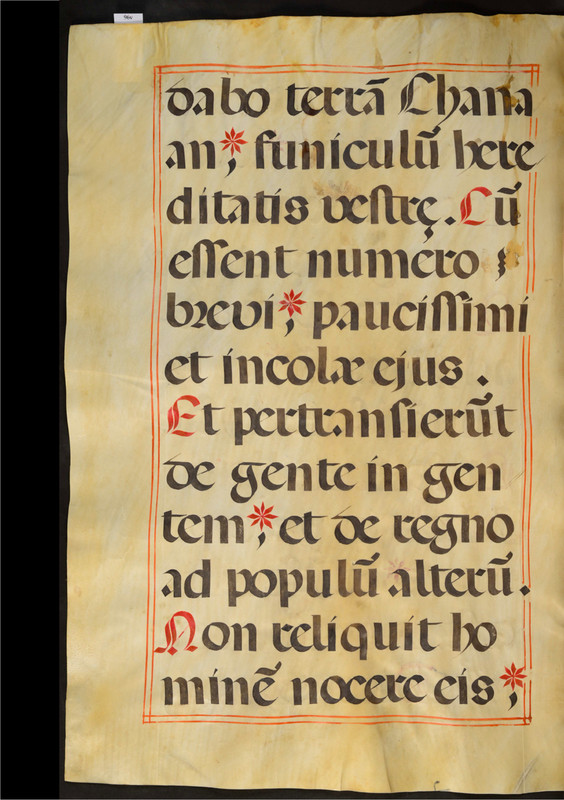 dabo terrā Chana
an; funiculū here
ditatis vestrę. Cū
essent numero
brevi; paucissimi
et incolæ ejus.
Et pertransierūt
de gente in gen
tem; et de regno
ad populū alterū.
Non reliquit ho
minē nocere eis;